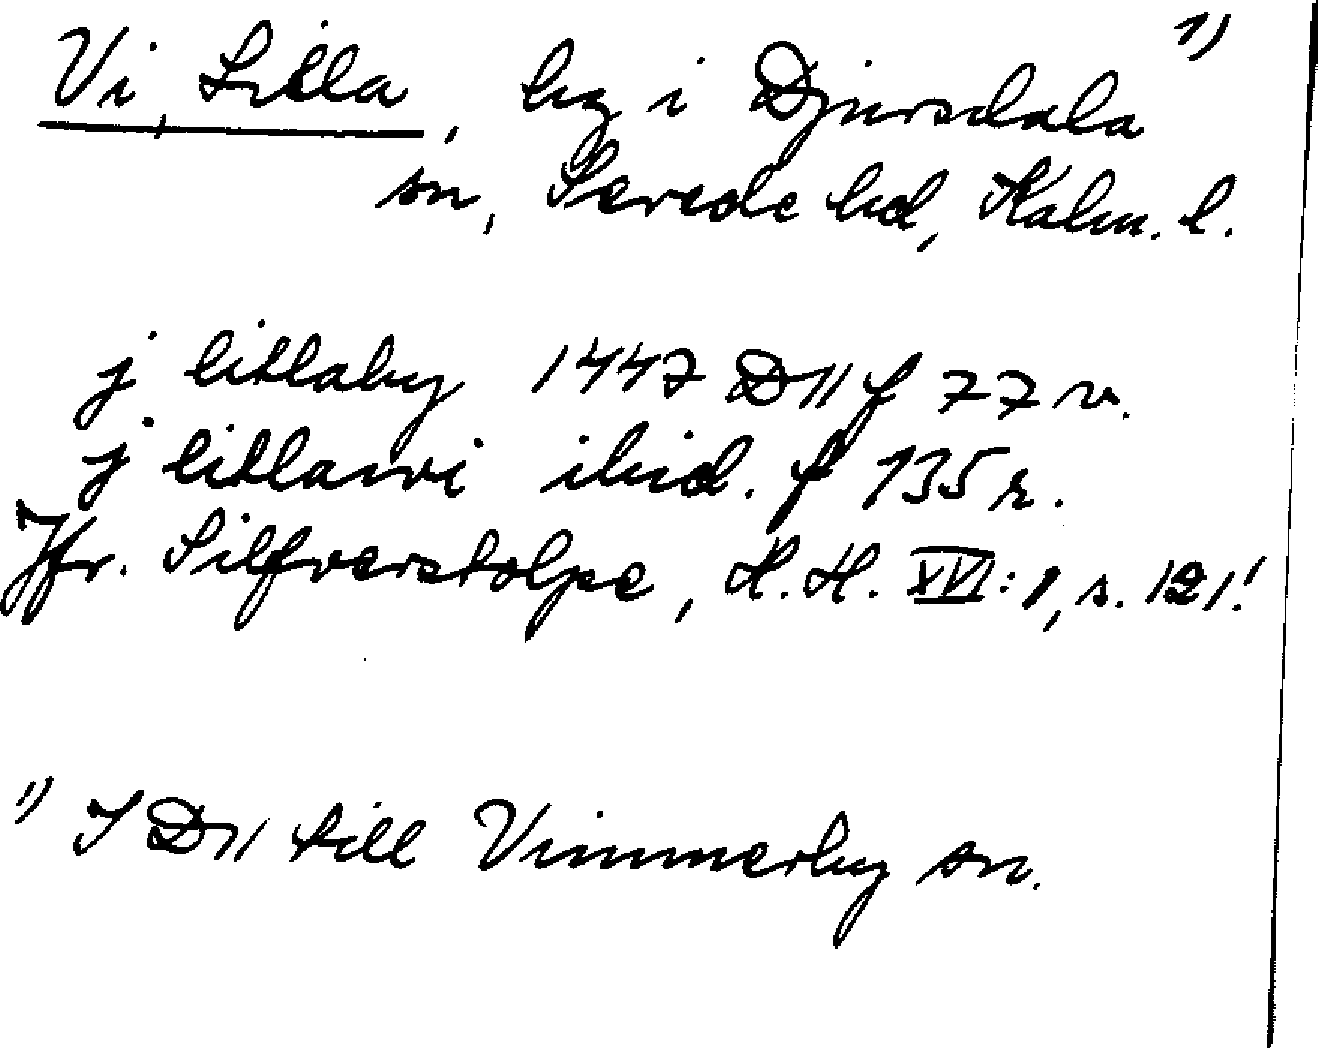 Vi, Lilla, by i Djursdala 1)
sn, Sevede hd, Kalm. l.
j litlaby 1447 D 11 f 77 v.
j litlawi ibid. f 135 r.
Jfr. Silfverstolpe, H. H. XVI: 1, s. 121!
1) I D 11 till Vimmerby sn.